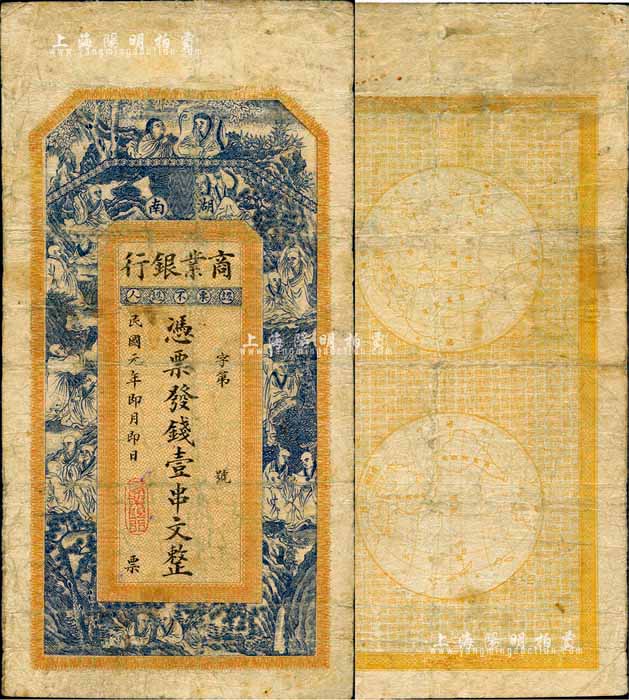 上海陽明拍賣
www.yangmingauction.com
湖南
商業銀行
認票不認人
字第 號
憑票發錢壹串文整
民國元年即月即日
票
上海陽明拍賣
www.yangmingauction.com
上海陽明拍賣
www.yangmingauction.com